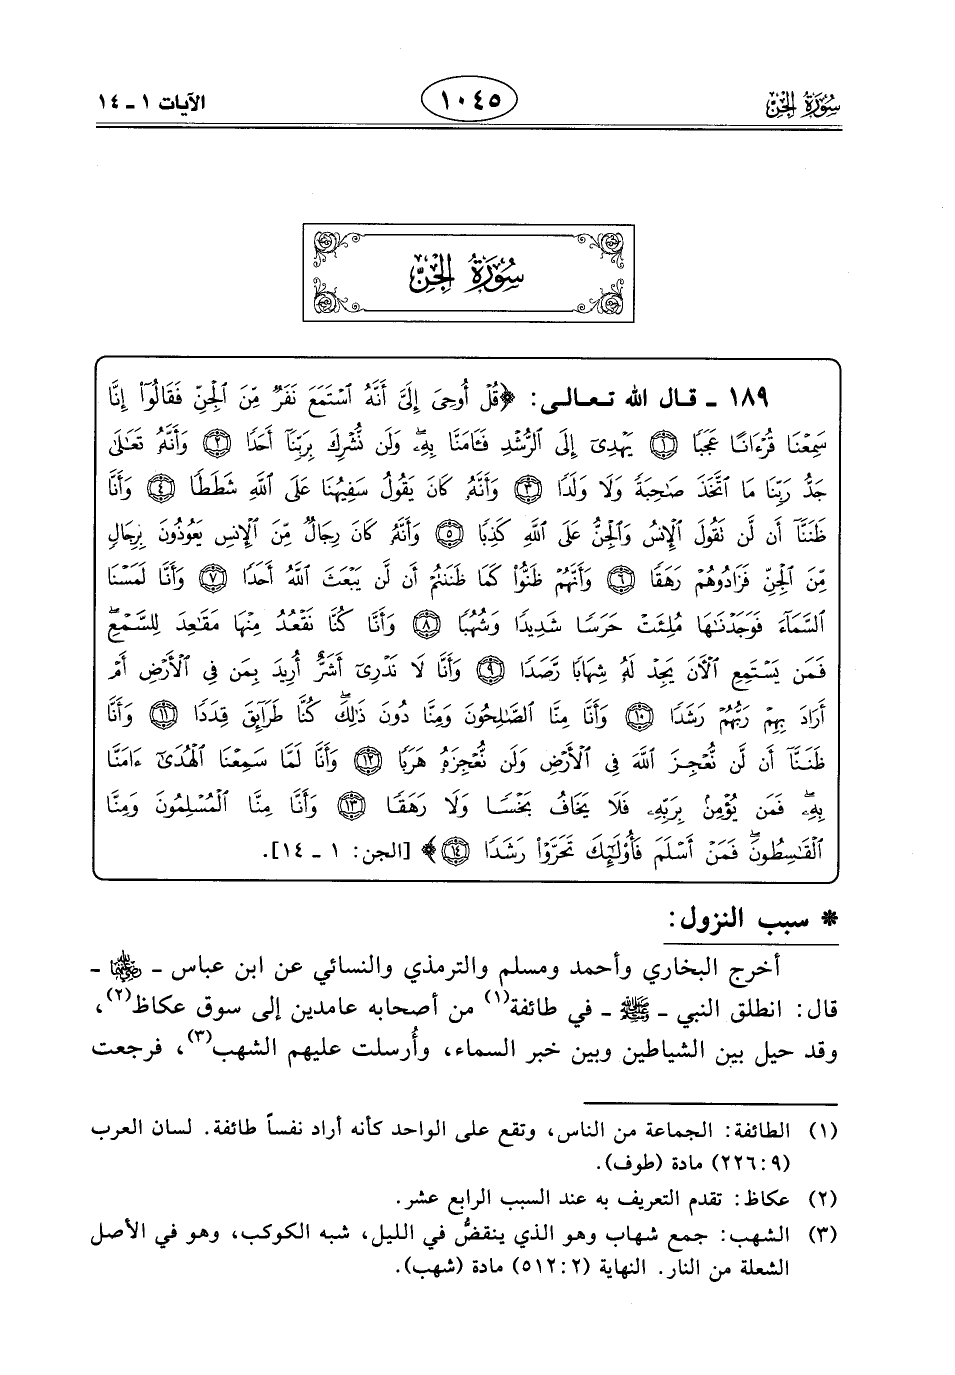 سُورَةُ الجِنِّ ١٠٤٥ الآيات ١ ـ ١٤
سُورَةُ الجِنِّ
١٨٩ ـ قال الله تعالى: ﴿قُلۡ أُوحِيَ إِلَيَّ أَنَّهُ ٱسۡتَمَعَ نَفَرٞ مِّنَ ٱلۡجِنِّ فَقَالُوٓاْ إِنَّا
سَمِعۡنَا قُرۡءَانًا عَجَبٗا ١ يَهۡدِيٓ إِلَى ٱلرُّشۡدِ فَـَٔامَنَّا بِهِۦۖ وَلَن نُّشۡرِكَ بِرَبِّنَآ أَحَدٗا ٢ وَأَنَّهُۥ تَعَٰلَىٰ
جَدُّ رَبِّنَا مَا ٱتَّخَذَ صَٰحِبَةٗ وَلَا وَلَدٗا ٣ وَأَنَّهُۥ كَانَ يَقُولُ سَفِيهُنَا عَلَى ٱللَّهِ شَطَطٗا ٤ وَأَنَّا
ظَنَنَّآ أَن لَّن تَقُولَ ٱلۡإِنسُ وَٱلۡجِنُّ عَلَى ٱللَّهِ كَذِبٗا ٥ وَأَنَّهُۥ كَانَ رِجَالٞ مِّنَ ٱلۡإِنسِ يَعُوذُونَ بِرِجَالٖ
مِّنَ ٱلۡجِنِّ فَزَادُوهُمۡ رَهَقٗا ٦ وَأَنَّهُمۡ ظَنُّواْ كَمَا ظَنَنتُمۡ أَن لَّن يَبۡعَثَ ٱللَّهُ أَحَدٗا ٧ وَأَنَّا لَمَسۡنَا
ٱلسَّمَآءَ فَوَجَدۡنَٰهَا مُلِئَتۡ حَرَسٗا شَدِيدٗا وَشُهُبٗا ٨ وَأَنَّا كُنَّا نَقۡعُدُ مِنۡهَا مَقَٰعِدَ لِلسَّمۡعِۖ
فَمَن يَسۡتَمِعِ ٱلۡأٓنَ يَجِدۡ لَهُۥ شِهَابٗا رَّصَدٗا ٩ وَأَنَّا لَا نَدۡرِيٓ أَشَرٌّ أُرِيدَ بِمَن فِي ٱلۡأَرۡضِ أَمۡ
أَرَادَ بِهِمۡ رَبُّهُمۡ رَشَدٗا ١٠ وَأَنَّا مِنَّا ٱلصَّٰلِحُونَ وَمِنَّا دُونَ ذَٰلِكَۖ كُنَّا طَرَآئِقَ قِدَدٗا ١١ وَأَنَّا
ظَنَنَّآ أَن لَّن نُّعۡجِزَ ٱللَّهَ فِي ٱلۡأَرۡضِ وَلَن نُّعۡجِزَهُۥ هَرَبٗا ١٢ وَأَنَّا لَمَّا سَمِعۡنَا ٱلۡهُدَىٰٓ ءَامَنَّا
بِهِۦۖ فَمَن يُؤۡمِنۢ بِرَبِّهِۦ فَلَا يَخَافُ بَخۡسٗا وَلَا رَهَقٗا ١٣ وَأَنَّا مِنَّا ٱلۡمُسۡلِمُونَ وَمِنَّا
ٱلۡقَٰسِطُونَۖ فَمَنۡ أَسۡلَمَ فَأُوْلَٰٓئِكَ تَحَرَّوۡاْ رَشَدٗا ١٤﴾ [الجن: ١ ـ ١٤].
* سبب النزول:
أخرج البخاري وأحمد ومسلم والترمذي والنسائي عن ابن عباس ـ رضي الله عنهما ـ
قال: انطلق النبي ـ ﷺ ـ في طائفة(١) من أصحابه عامدين إلى سوق عكاظ(٢)،
وقد حيل بين الشياطين وبين خبر السماء، وأُرسلت عليهم الشهب(٣)، فرجعت
(١) الطائفة: الجماعة من الناس، وتقع على الواحد كأنه أراد نفساً طائفة. لسان العرب
(٩: ٢٢٦) مادة (طوف).
(٢) عكاظ: تقدم التعريف به عند السبب الرابع عشر.
(٣) الشهب: جمع شهاب وهو الذي ينقضُّ في الليل، شبه الكوكب، وهو في الأصل
الشعلة من النار. النهاية (٢: ٥١٢) مادة (شهب).